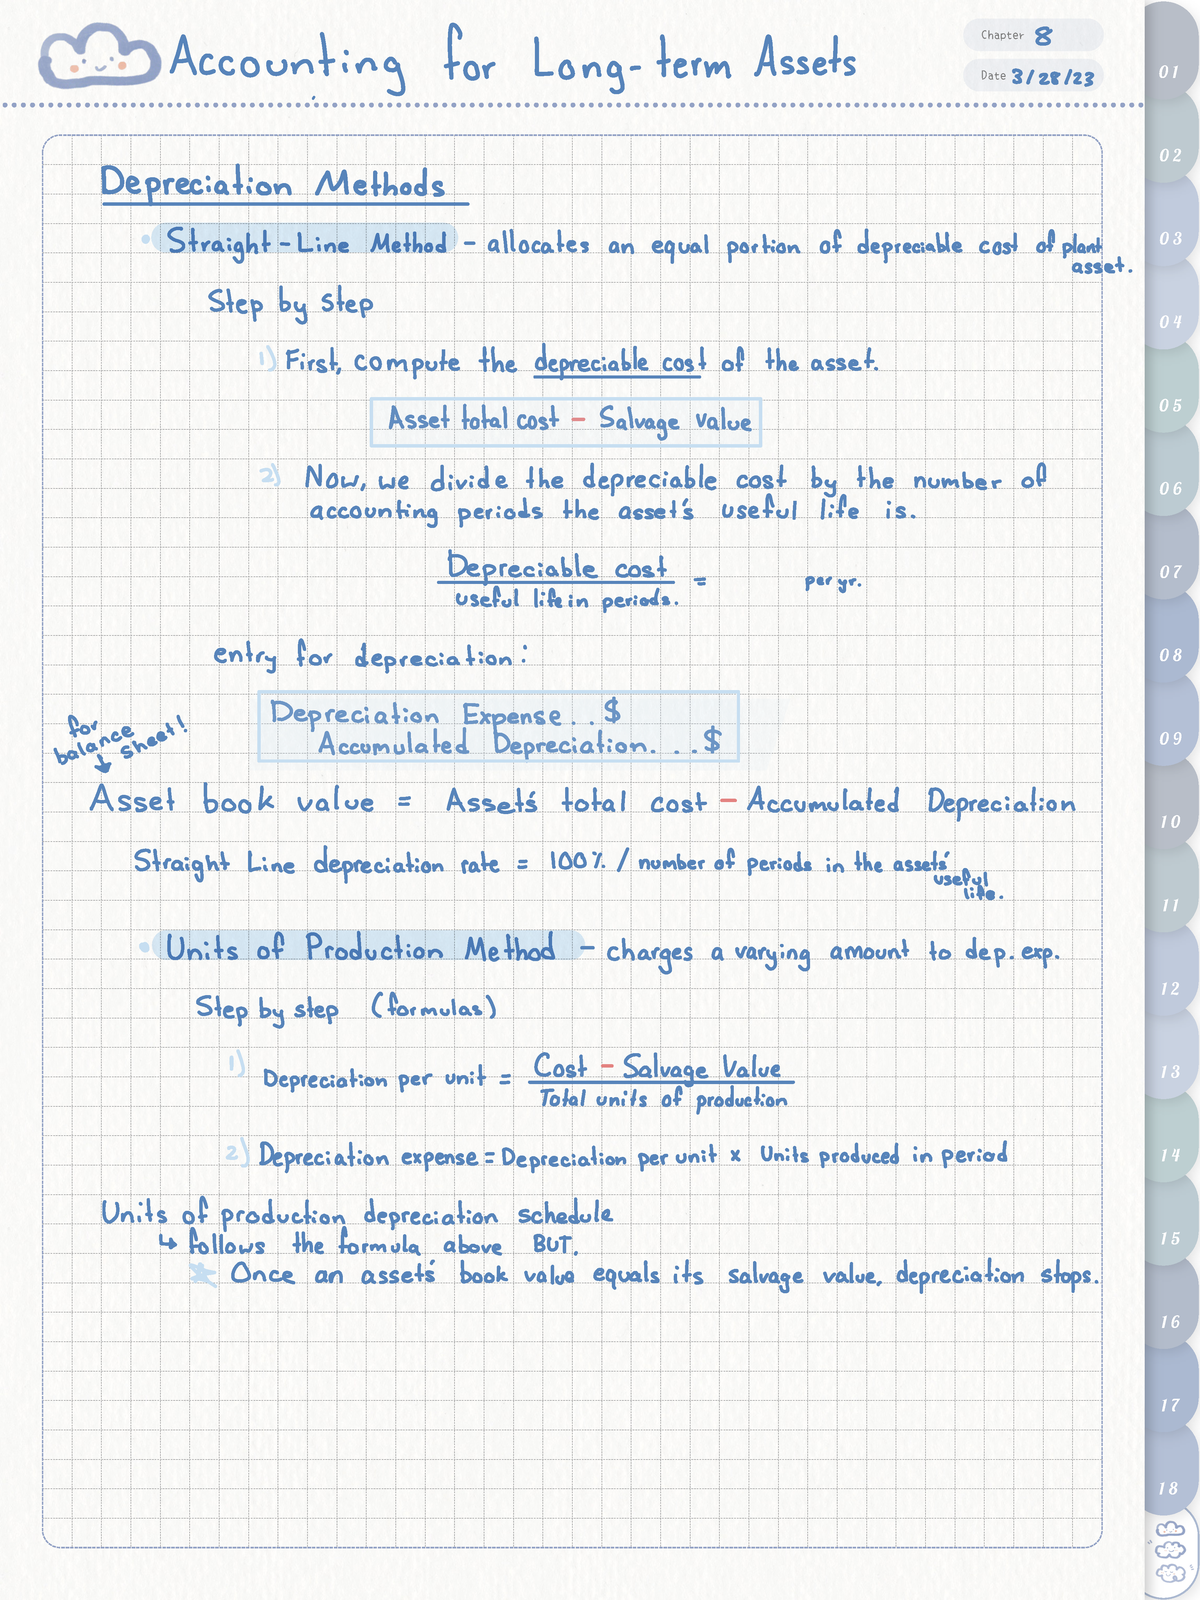 Accounting for Long-term Assets
Chapter 8
Date 3/28/23
Depreciation Methods
• Straight-Line Method - allocates an equal portion of depreciable cost of plant
asset.
Step by step
1) First, compute the depreciable cost of the asset.
Asset total cost - Salvage value
2) Now, we divide the depreciable cost by the number of
accounting periods the asset's useful life is.
Depreciable cost
= per yr.
useful life in periods.
entry for depreciation:
Depreciation Expense . . $
Accumulated Depreciation. . . $
for
balance
sheet!
↓
Asset book value = Asset's total cost - Accumulated Depreciation
Straight Line depreciation rate = 100% / number of periods in the assets'
useful
life.
• Units of Production Method - charges a varying amount to dep. exp.
Step by step (formulas)
1) Depreciation per unit = Cost - Salvage Value
Total units of production
2) Depreciation expense = Depreciation per unit x Units produced in period
Units of production depreciation schedule
↳ follows the formula above BUT.
* Once an assets' book value equals its salvage value, depreciation stops.
01
02
03
04
05
06
07
08
09
10
11
12
13
14
15
16
17
18